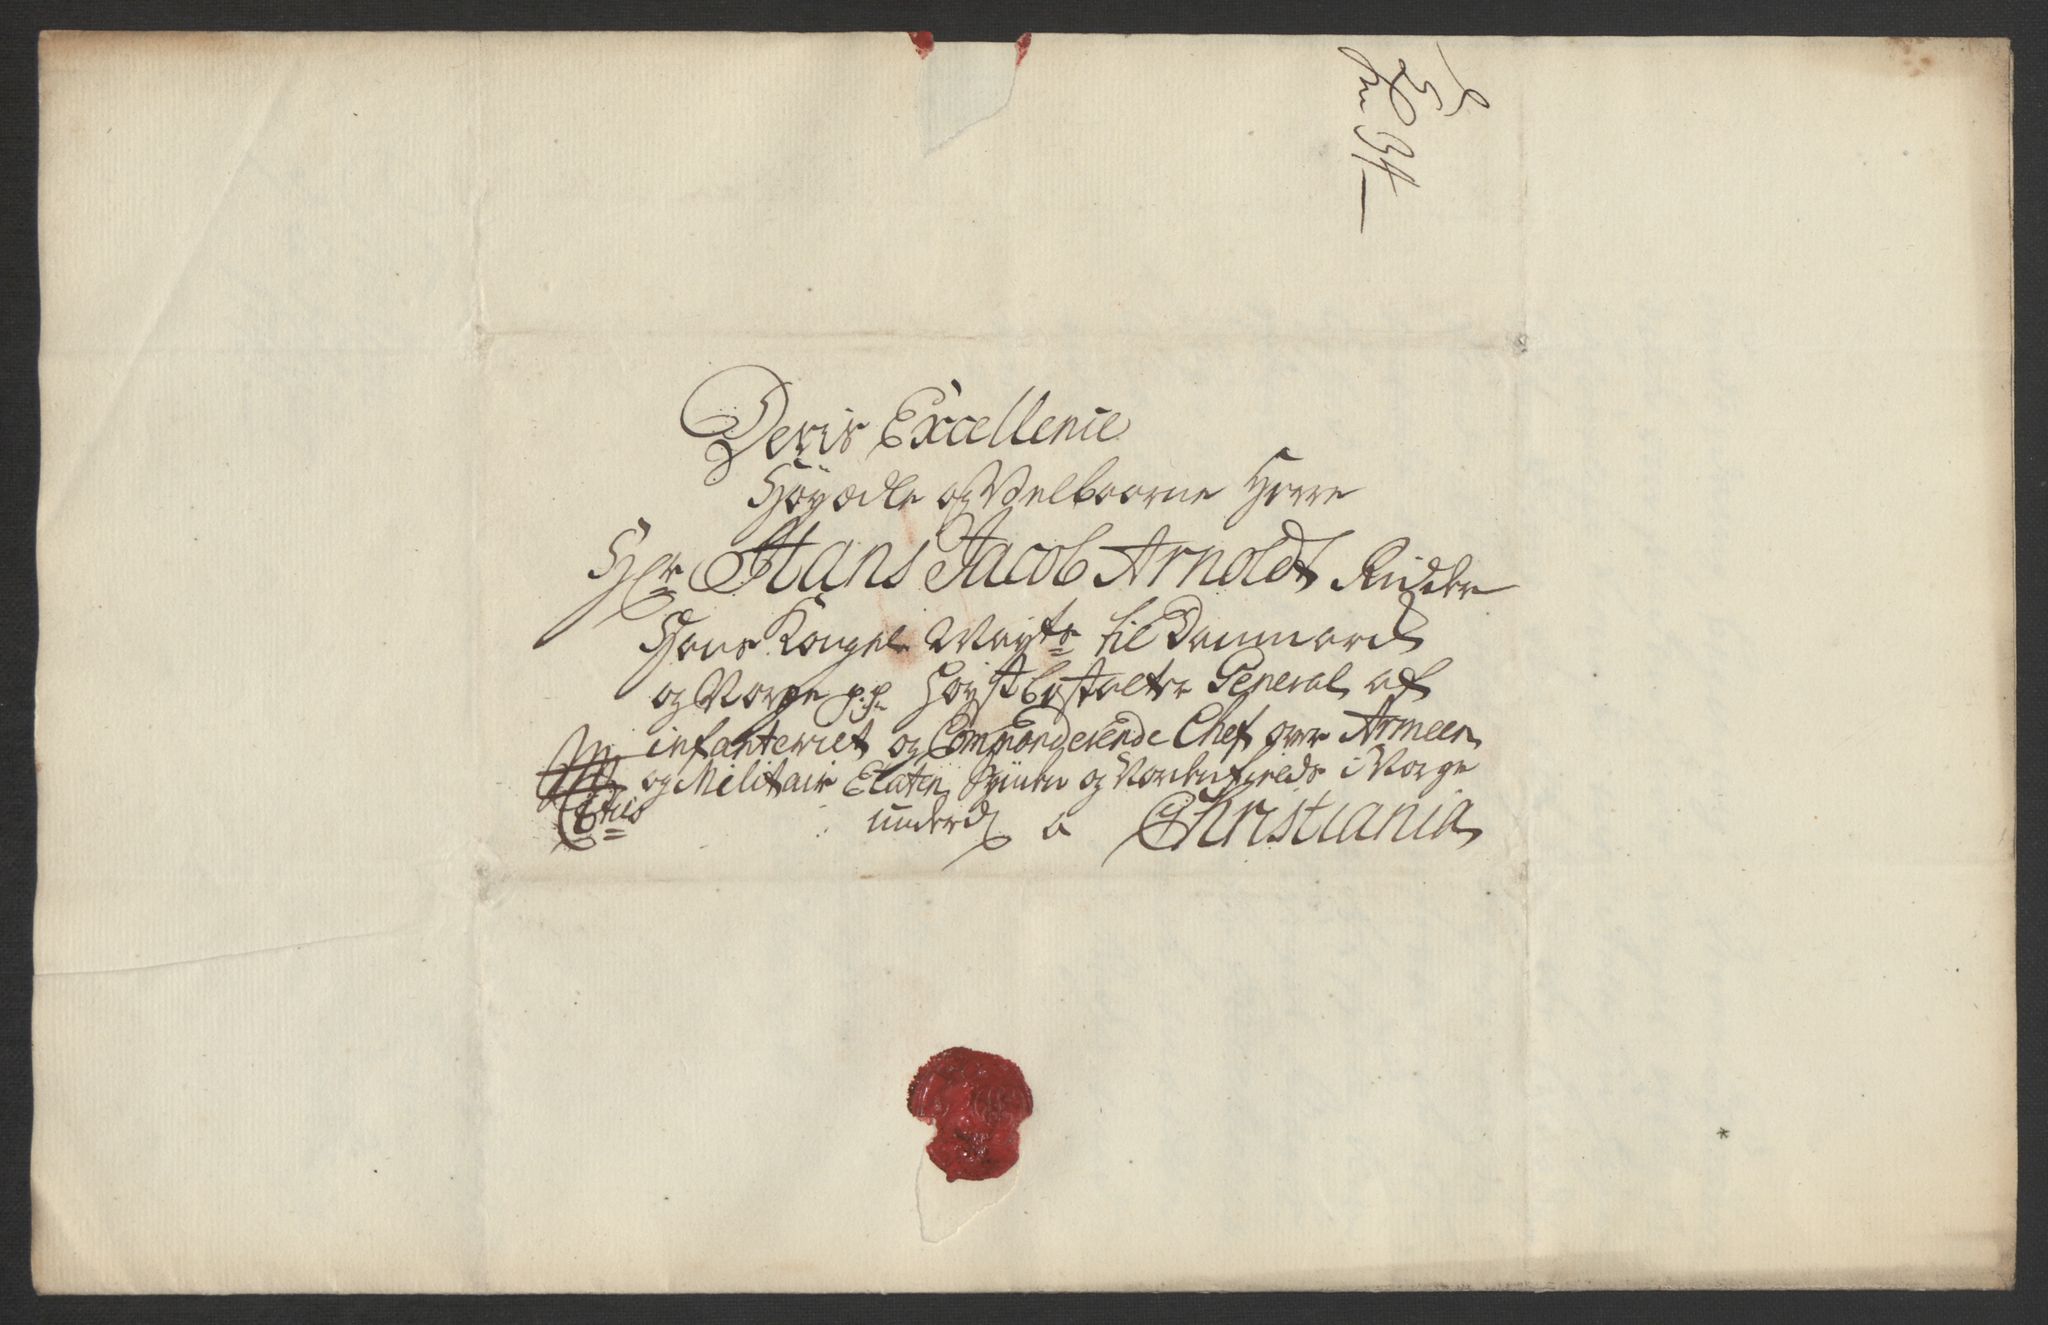 Deris Excellence
Höyædle og Velbaarne Herre
Hr Hans Jacob Arnoldt Ridder
Hans Kongel Mayts til Danmarck
og Norge p.p. Höyst Bestalter General af
infanteriet og Commanderende Chef over Armeen
og Militair Etaten Synden og Nordenfields i Norge
Citis underd a Christiania